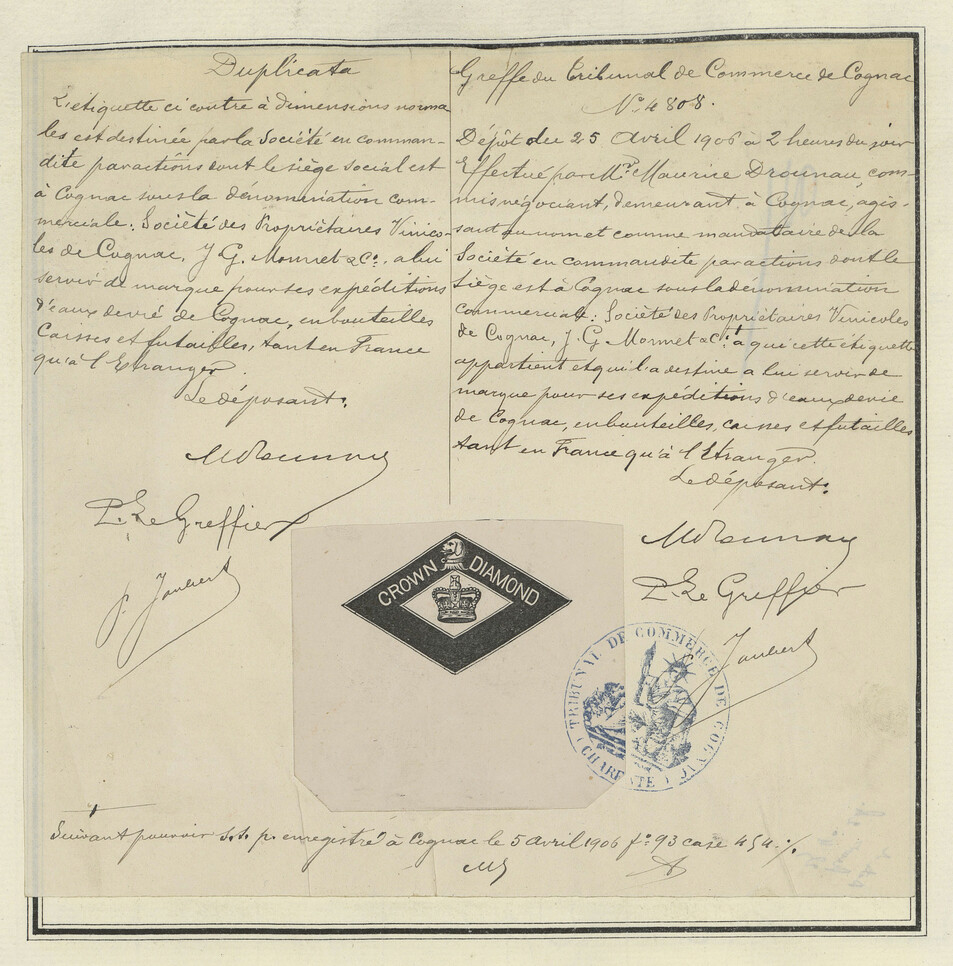 Duplicata
L'étiquette ci contre à dimensions norma
les est destinée par la Société en comman-
dite par actions dont le siège social est
à Cognac sous la dénomination com-
merciale: Société des Propriétaires Vinico-
les de Cognac, J. G. Monnet & Cie. à lui
servir de marque pour ses expéditions
d'eaux de vie de Cognac, en bouteilles
Caisses et futailles, tant en France
qu'à l'Etranger.
Le déposant:
MDrounau
P. Le Greffier
Greffe du Tribunal de Commerce de Cognac
No. 4808.
Dépôt du 25 Avril 1906 à 2 heures du soir
Effectué par Mr. Maurice Drounau, com-
mis négociant, demeurant à Cognac, agis-
sant au nom et comme mandataire de la
Société en commandite par actions dont le
siège est à Cognac sous la dénomination
commerciale: Société des Propriétaires Vinicoles
de Cognac, J. G. Monnet & Cie. à qui cette étiquette
appartient et qu'il a destiné à lui servir de
marque pour ses expéditions d'eaux de vie
de Cognac, en bouteilles, caisses et futailles
tant en France qu'à l'Etranger.
Le déposant:
MDrounau
P. Le Greffier
CROWN DIAMOND
TRIBUNAL DE COMMERCE DE COGNAC
(CHARENTE)
Suivant pouvoir s.s. p. enregistré à Cognac le 5 Avril 1906 fo. 93 case 454 ./.